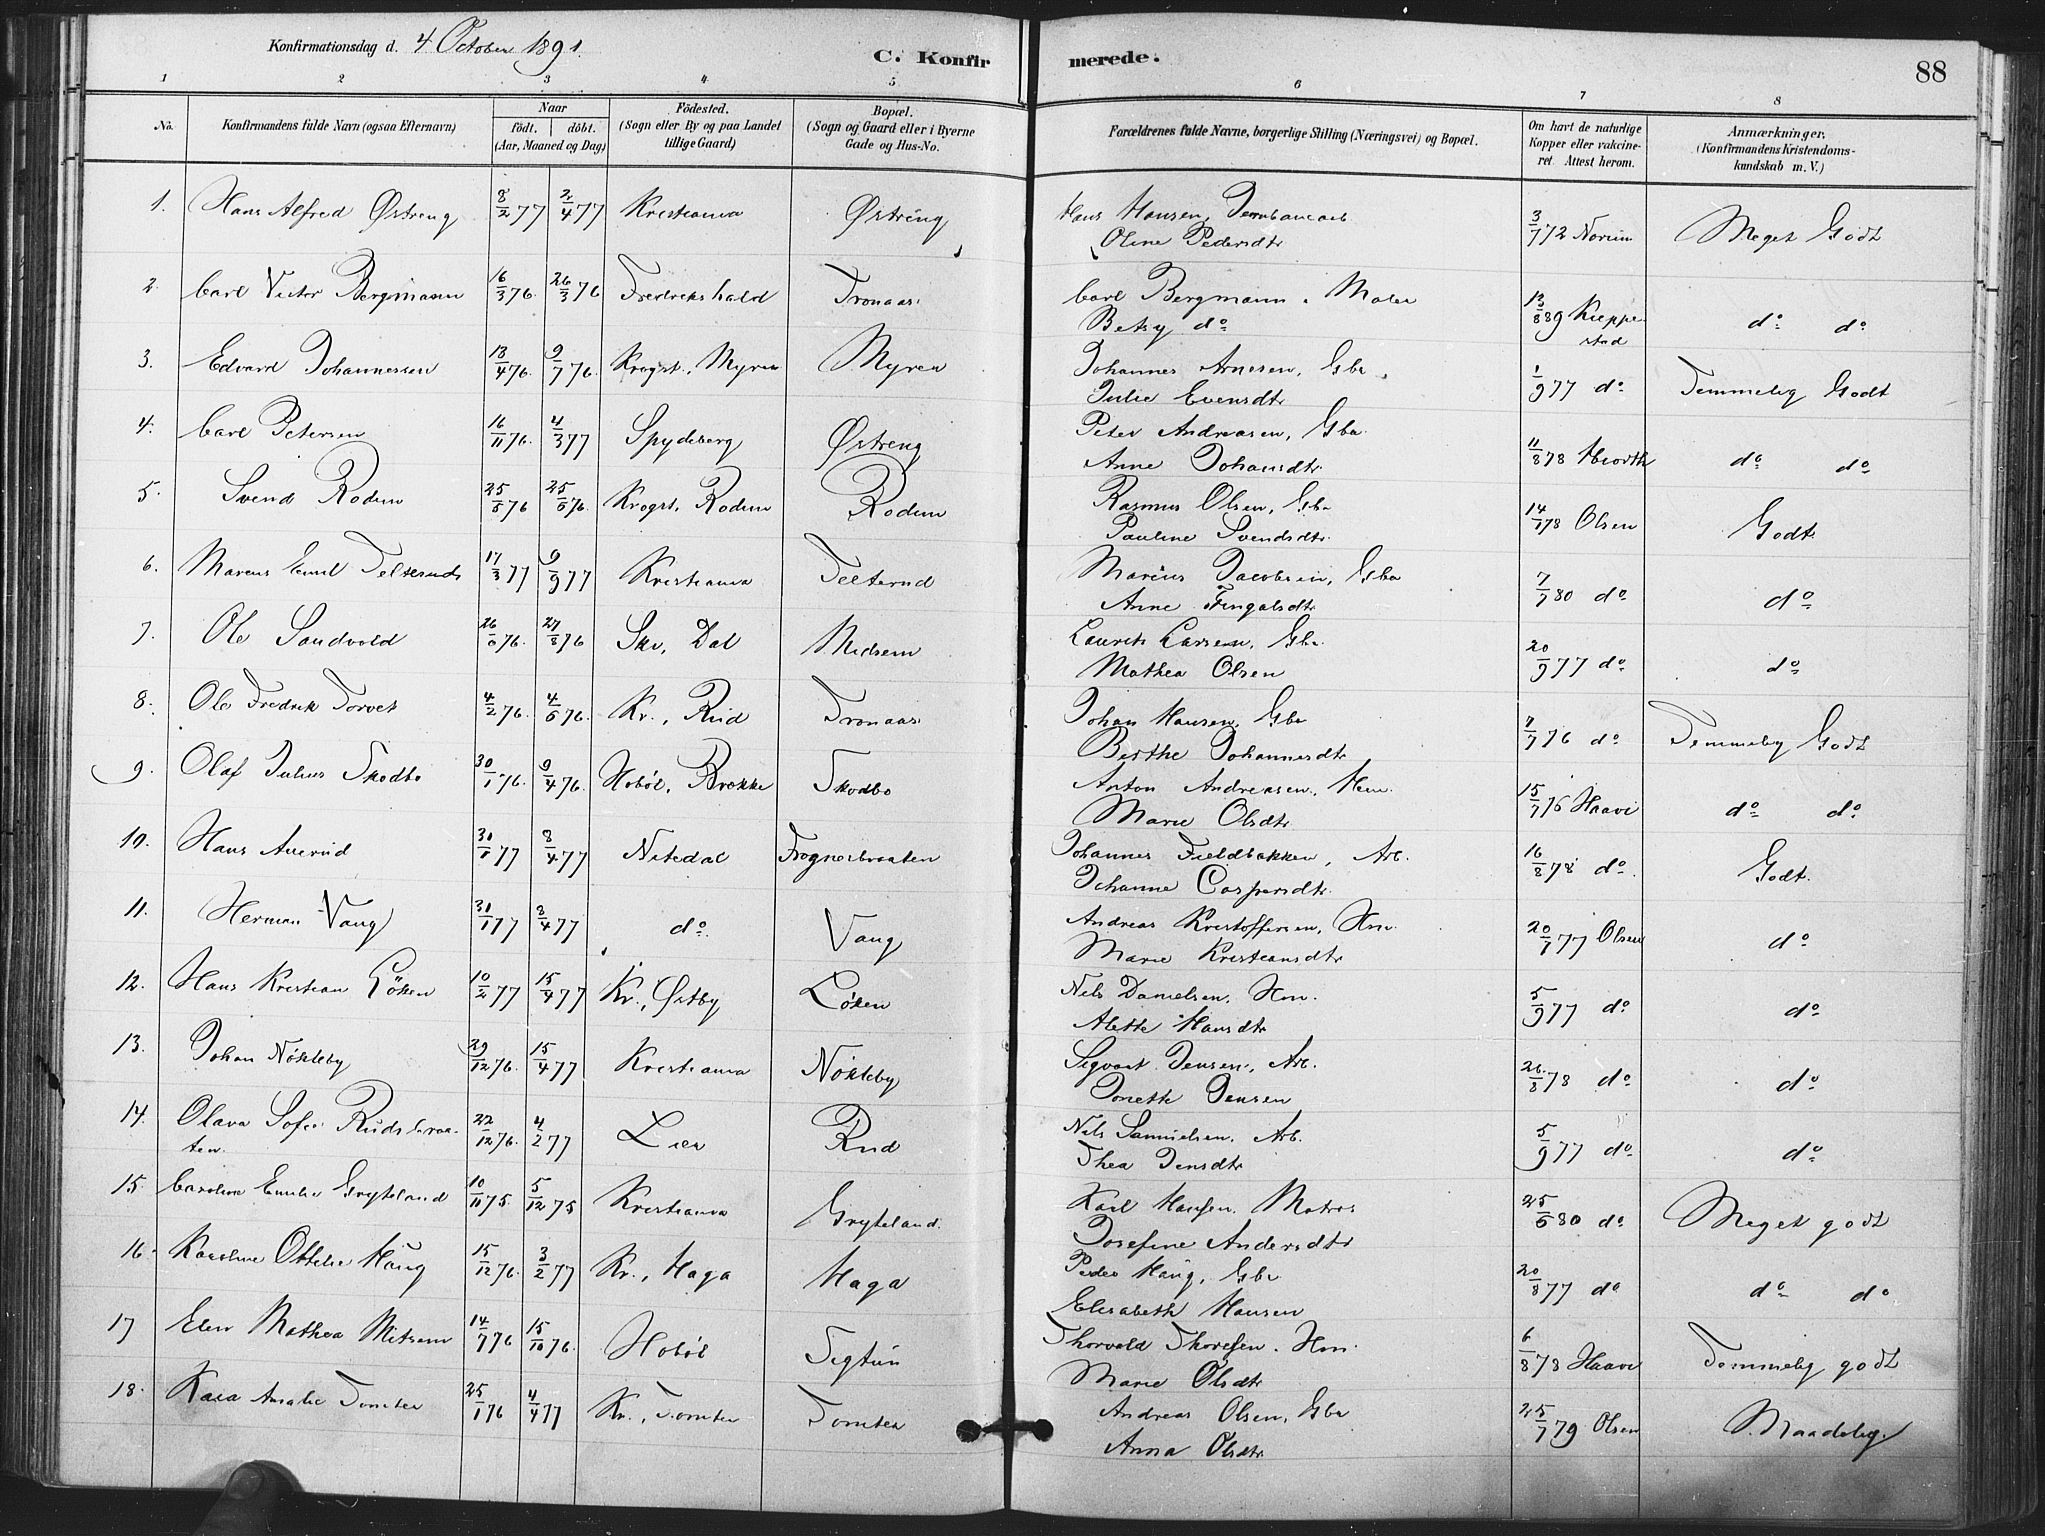 Konfirmationsdag d. 4 October 1891.
C. Konfirmerede.
88
1 2 3 4 5 6 7 8
No. Konfirmandens fulde Navn (ogsaa Efternavn) Naar født. døbt. (Aar, Maaned og Dag) Fødested. (Sogn eller By og paa Landet tillige Gaard) Bopæl. (Sogn og Gaard eller i Byerne Gade og Hus-No. Forældrenes fulde Navne, borgerlige Stilling (Næringsvei) og Bopæl. Om havt de naturlige Kopper eller vakcineret. Attest herom. Anmærkninger. (Konfirmandens Kristendomskundskab m. V.)
1. Hans Alfred Østreng 8/2 77 2/4 77 Kristiania Østreng Hans Hansen, 3/7 72 Norum Meget Godt
Oline Pedersdtr
2. Carl Victor Bergmann 16/3 76. 26/3 76 Fredrikshald Tronaas Carl Bergmann, Maler 13/8 89 Kieppestad do do
Betsy do
3. Edvard Johannessen 13/4 76. 9/7 76. Krogst., Myren Myren Johannes Arnesen, Gbr. 1/9 77 do Temmelig Godt
Julie Evensdtr
4. Carl Petersen 16/11 76. 4/3 77 Spydeberg Østreng Peter Andreasen, Gbr. 11/8 78 Hiorth do do
Anne Johansdtr.
5. Svend Rodum 25/5 76 25/6 76. Krogst, Rodum Rodum Rasmus Olsen, Gbr 14/1 78 Olsen Godt
Pauline Svendsdtr.
6. Marius Emil Telterud 17/3 77 9/9 77 Kristiania Telterud Marius Jacobsen, Gbr 7/7 80 do do
Anne Fingalsdtr
7. Ole Sandvold 26/6 76. 27/8 76 Ski, Dal Midsem Laurits Larsen, Gbr. 20/9 77 do do
Mathea Olsen
8. Ole Fredrik Torvet 4/2 76. 4/6 76. Kr., Rud Tronaas Johan Hansen, Gbr 7/7 76 do Temmelig Godt
Berthe Johannesdtr
9. Olaf Julius Skodbo 30/1 76. 9/4 76. Hobøl, Brekke Skodbo Anton Andreasen, Hm. 15/7 76 Haave do do
Marie Olsdtr.
10. Hans Auerud 30/1 77 8/4 77 Nitedal Frognerbraaten Johannes Fieldbakken, Arb. 16/8 78 do. Godt.
Johanne Caspersdtr.
11. Herman Vang 31/1 77 8/4 77 do. Vang Andreas Kristoffersen, Hm. 20/1 77 Olsen do
Marie Kristiansdtr
12. Hans Kristian Løken 10/2 77 15/4 77 Kr., Østby Løken Nils Danielsen, Hm. 5/9 77 do do
Alette Hansdtr
13. Johan Nøkleby 29/12 76. 15/4 77 Kristiania Nøkleby Sigvart Jensen, Arb. 26/8 78 do do
Jonette Jensen
14. Olava Sofie Rudsbraaten. 22/12 76. 4/2 77 Lier Rud Nils Samuelsen, Arb. 5/9 77 do do
Thea Jensdtr
15. Caroline Emilie Gryteland 10/11 75. 5/12 75 Kristiania Gryteland. Karl Hansen, Matros 25/6 80 do Meget godt
Josefine Andersdtr
16. Karoline Ottilie Haug 15/12 76. 3/2 77 Kr., Haga Haga Peder Haug, Gbr 20/8 77 do do do
Elisabeth Hansen
17 Elen Mathea Mitsem 14/7 76 15/10 76. Hobøl Sigtun Thorvald Thoresen, Hm. 6/8 78 Haave Temmelig godt
Marie Olsdtr
18. Kaia Amalie Tomter 25/1 76 4/4 77 Kr., Tomter Tomter Andreas Olsen, Gbr 25/7 79 Olsen Maadelig.
Anna Olsdtr